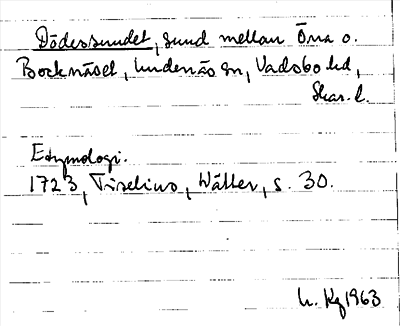 Dödessundet, sund mellan Öna o.
Bocknäset, Undenäs sn, Vadsbo hd,
Skar. l.
Etymologi.
1723, Tiselius, Wätter, s. 30.
1963